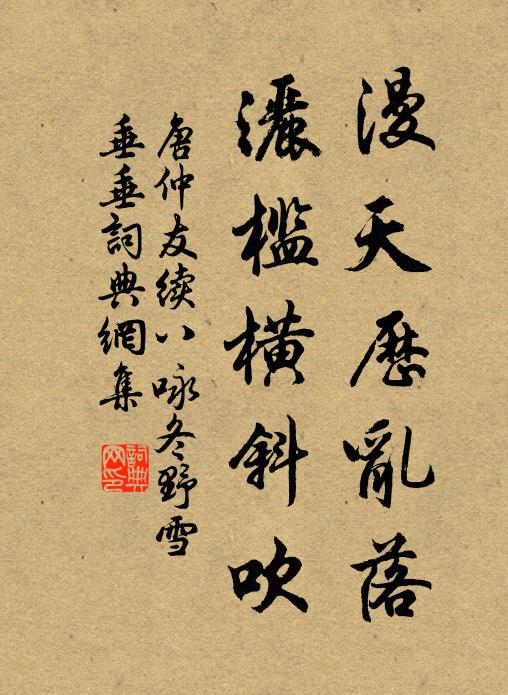 漫天歷亂落
灑檻橫斜吹
唐仲友續八咏冬野雪
垂垂詞典網集
詞典网印